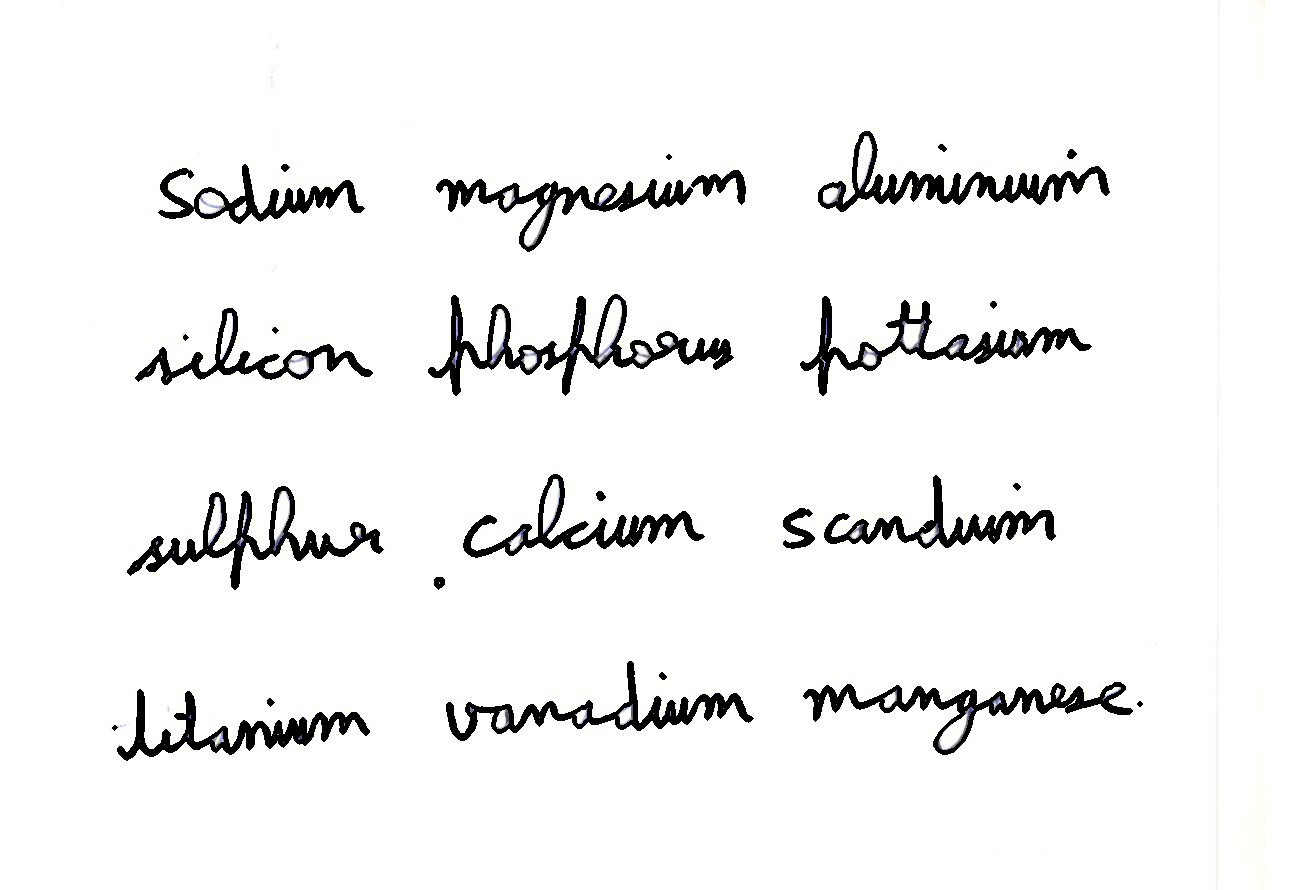 Sodium magnesium aluminium
silicon phosphorus pottasium
sulphur . calcium scandium
titanium vanadium manganese.